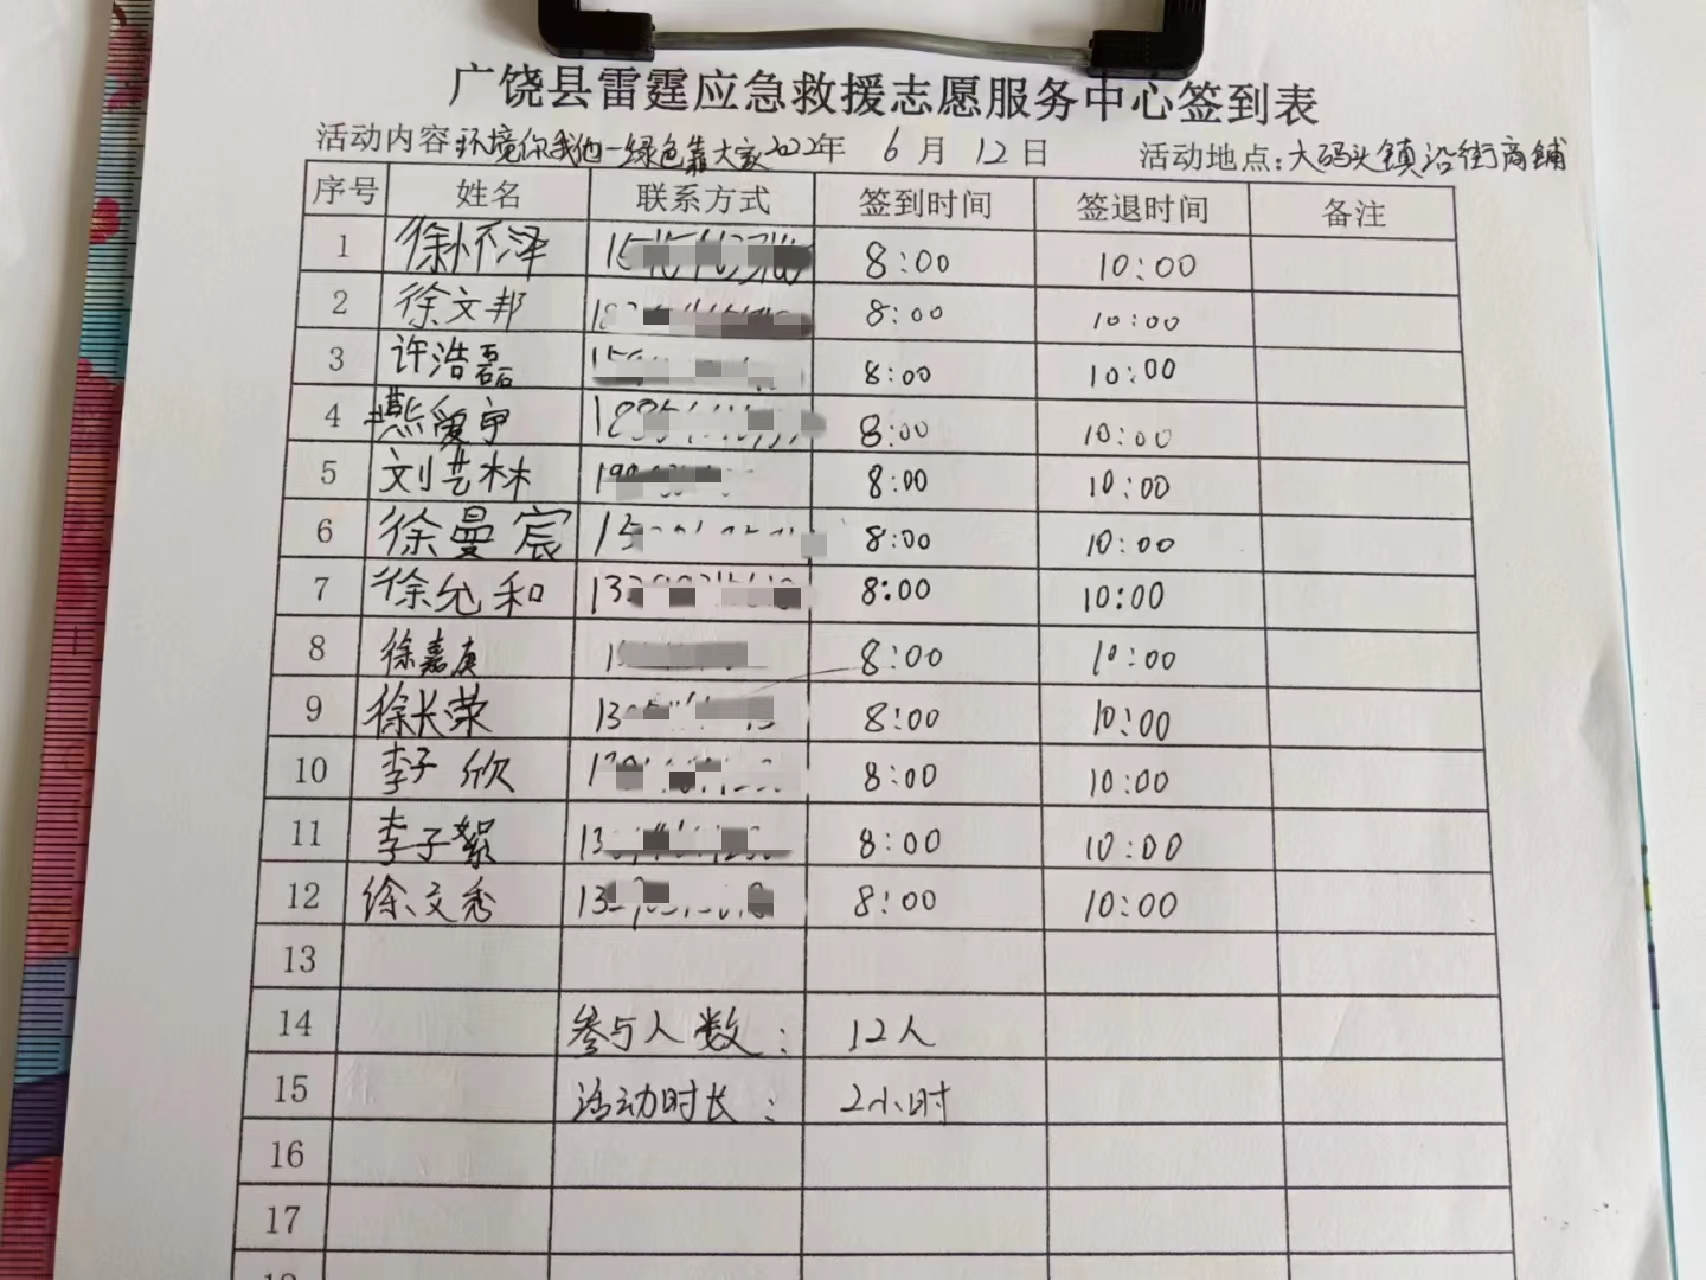 广饶县雷霆应急救援志愿服务中心签到表
活动内容:环境你我他一绿色靠大家 2022年 6月 12日 活动地点:大码头镇沿街商铺
序号 姓名 联系方式 签到时间 签退时间 备注
1 徐怀泽 8:00 10:00
2 徐文邦 8:00 10:00
3 许浩磊 8:00 10:00
4 8:00 10:00
5 刘艺林 8:00 10:00
6 徐曼宸 15 8:00 10:00
7 徐允和 8:00 10:00
8 徐嘉庚 8:00 10:00
9 徐长荣 13 8:00 10:00
10 李子欣 8:00 10:00
11 李子絮 13 8:00 10:00
12 徐文秀 13 8:00 10:00
13
14 参与人数: 12人
15 活动时长: 2小时
16
17